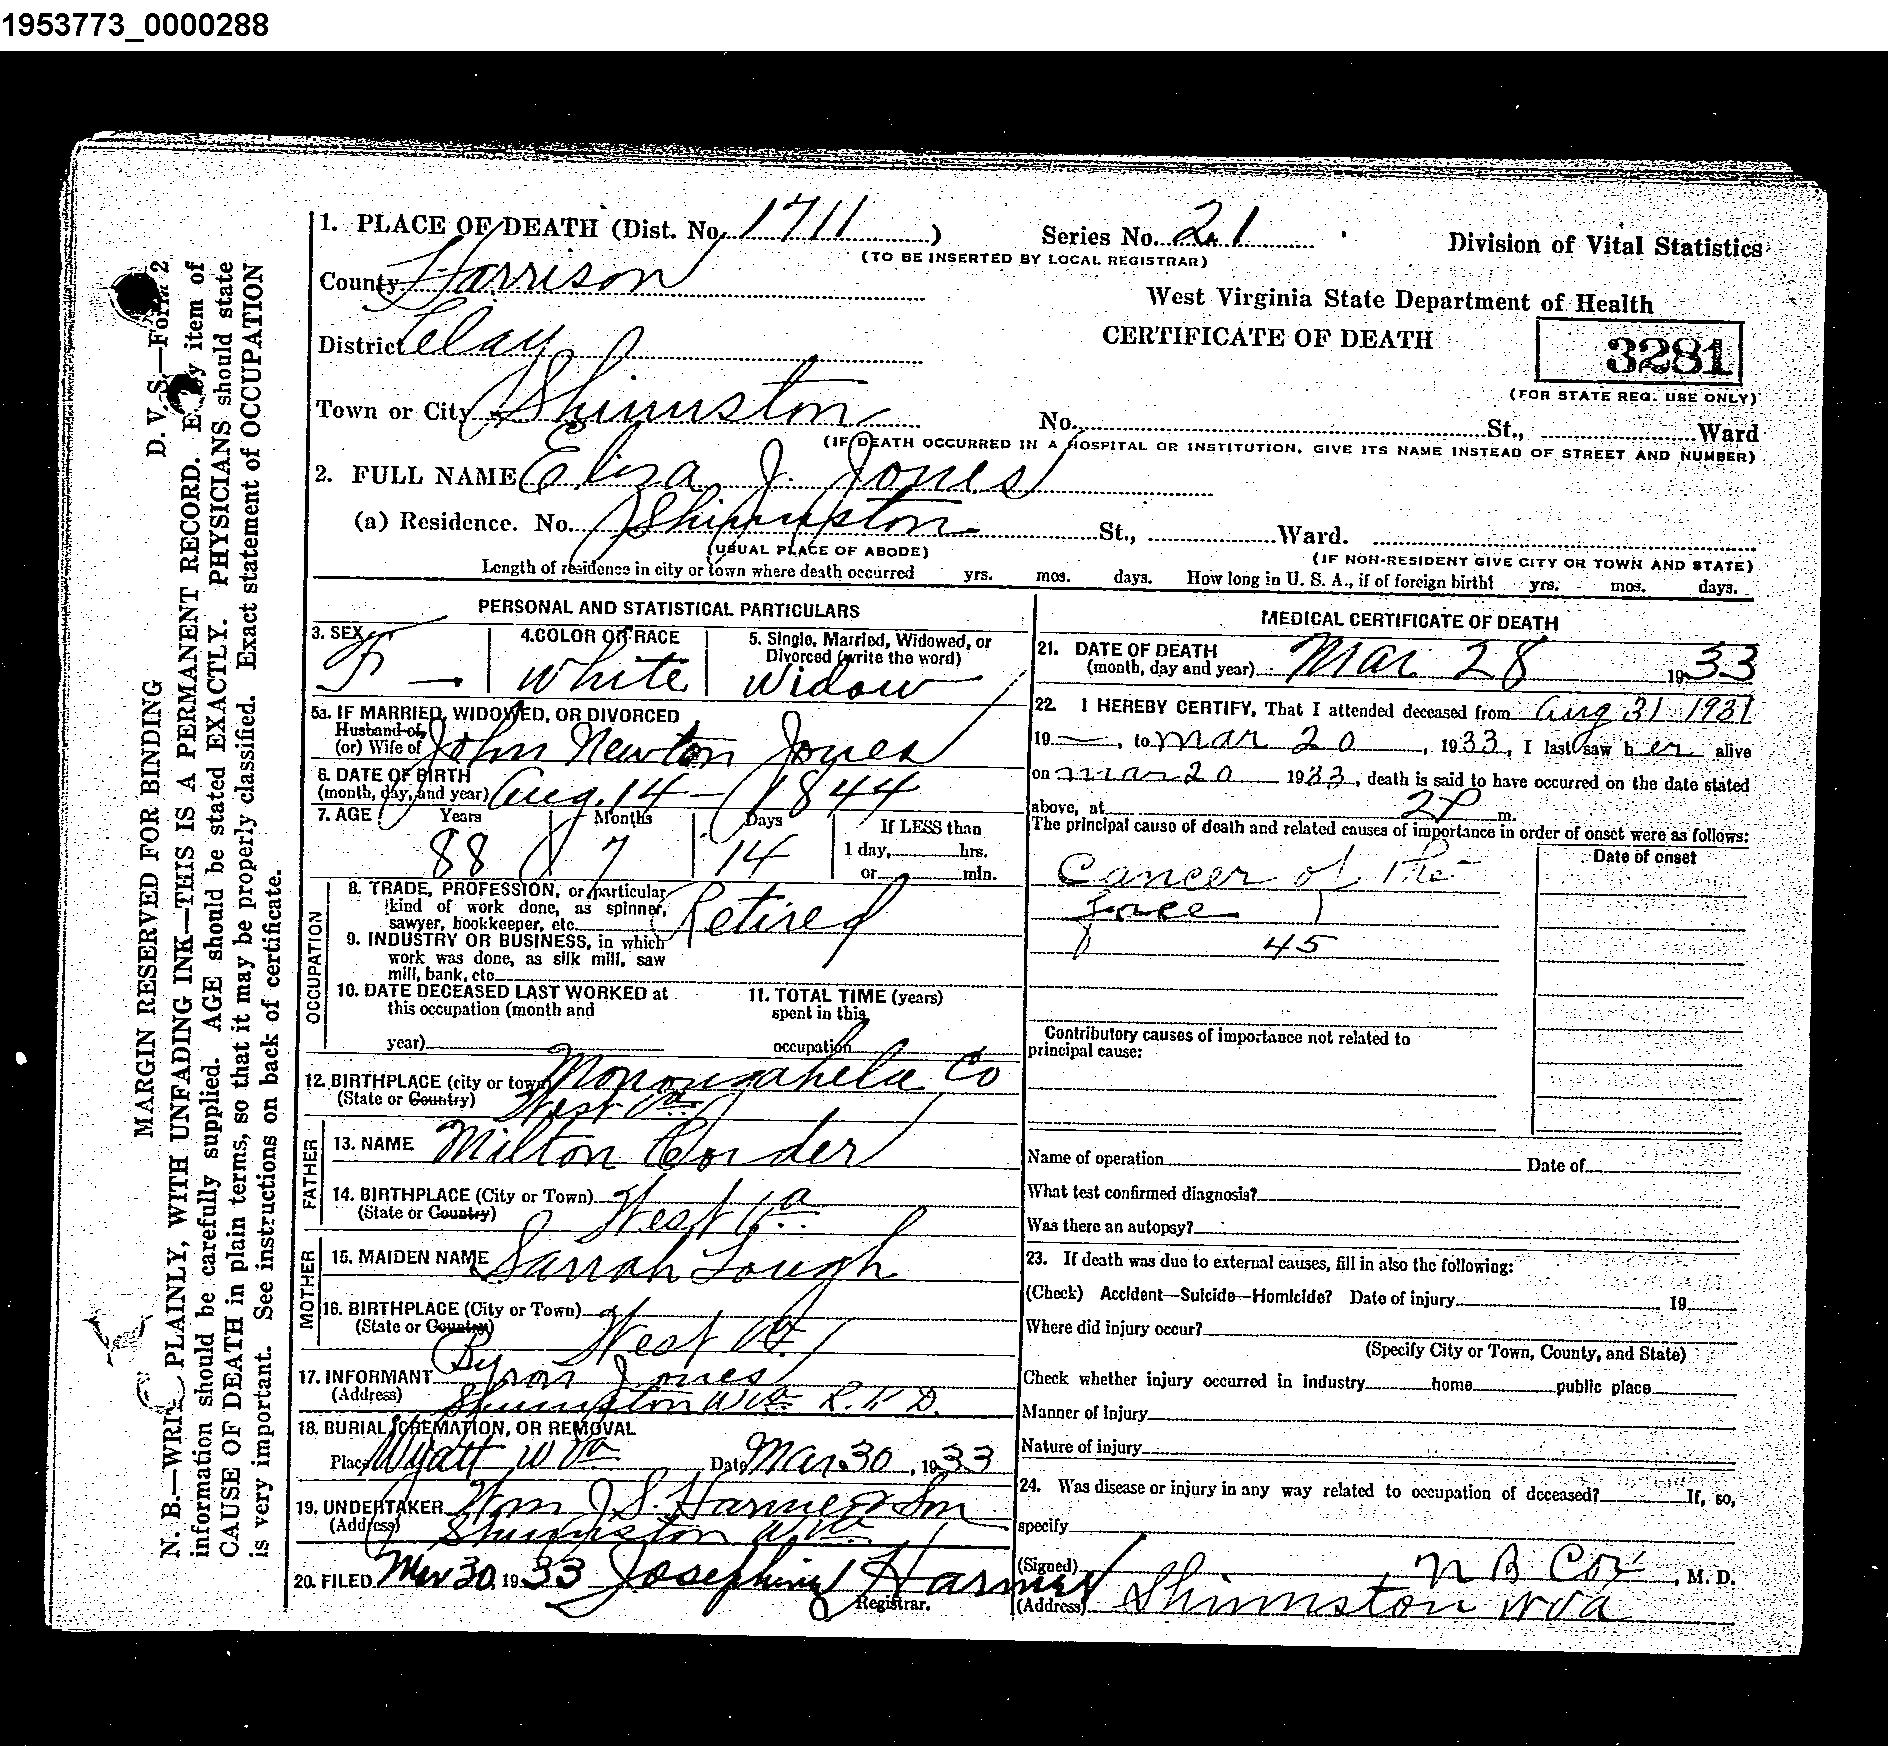 1953773_0000288
1. PLACE OF DEATH (Dist. No. 1711 )
Series No. 21
(TO BE INSERTED BY LOCAL REGISTRAR)
Division of Vital Statistics
County Harrison
West Virginia State Department of Health
CERTIFICATE OF DEATH
District Clay
3281
(FOR STATE REG. USE ONLY)
Town or City Shinnston
No. St., Ward
(IF DEATH OCCURRED IN A HOSPITAL OR INSTITUTION, GIVE ITS NAME INSTEAD OF STREET AND NUMBER)
2. FULL NAME Eliza J. Jones
(a) Residence. No. Shinnston St., Ward.
(USUAL PLACE OF ABODE)
(IF NON-RESIDENT GIVE CITY OR TOWN AND STATE)
Length of residence in city or town where death occurred yrs. mos. days. How long in U. S. A., if of foreign birth? yrs. mos. days.
PERSONAL AND STATISTICAL PARTICULARS
3. SEX
F
4. COLOR OR RACE
White
5. Single, Married, Widowed, or
Divorced (write the word)
Widow
5a. IF MARRIED, WIDOWED, OR DIVORCED
Husband of,
(or) Wife of John Newton Jones
6. DATE OF BIRTH
(month, day, and year) Aug. 14 - 1844
7. AGE Years Months Days
88 7 14
If LESS than
1 day, hrs.
or min.
OCCUPATION
8. TRADE, PROFESSION, or particular
kind of work done, as spinner,
sawyer, bookkeeper, etc.
Retired
9. INDUSTRY OR BUSINESS, in which
work was done, as silk mill, saw
mill, bank, etc.
10. DATE DECEASED LAST WORKED at
this occupation (month and
year)
11. TOTAL TIME (years)
spent in this
occupation
12. BIRTHPLACE (city or town) Monongahela Co
(State or Country) West Va
FATHER
13. NAME Milton Corder
14. BIRTHPLACE (City or Town)
(State or Country) West Va
MOTHER
15. MAIDEN NAME Sarrah Lough
16. BIRTHPLACE (City or Town)
(State or Country) West Va.
17. INFORMANT Byron Jones
(Address) Shinnston W Va R. F. D.
18. BURIAL, CREMATION, OR REMOVAL
Place Wyatt W Va Date Mar. 30, 1933
19. UNDERTAKER J. S. Harmer & Son
(Address) Shinnston W. Va.
20. FILED Mar 30, 1933 Josephine Harmer
Registrar.
MEDICAL CERTIFICATE OF DEATH
21. DATE OF DEATH
(month, day and year) Mar 28 1933
22. I HEREBY CERTIFY, That I attended deceased from Aug 31 1931
19 —, to Mar 20, 1933, I last saw her alive
on Mar 20 1933, death is said to have occurred on the date stated
above, at 2 P m.
The principal cause of death and related causes of importance in order of onset were as follows:
Date of onset
Cancer of the
face
45
Contributory causes of importance not related to
principal cause:
Name of operation Date of
What test confirmed diagnosis?
Was there an autopsy?
23. If death was due to external causes, fill in also the following:
(Check) Accident—Suicide—Homicide? Date of injury 19
Where did injury occur?
(Specify City or Town, County, and State)
Check whether injury occurred in industry home public place
Manner of injury
Nature of injury
24. Was disease or injury in any way related to occupation of deceased? If, so,
specify
(Signed) N B Cox, M. D.
(Address) Shinnston W Va
D. V. S.—Form 2
MARGIN RESERVED FOR BINDING
N. B.—WRITE PLAINLY, WITH UNFADING INK—THIS IS A PERMANENT RECORD. Every item of
information should be carefully supplied. AGE should be stated EXACTLY. PHYSICIANS should state
CAUSE OF DEATH in plain terms, so that it may be properly classified. Exact statement of OCCUPATION
is very important. See instructions on back of certificate.